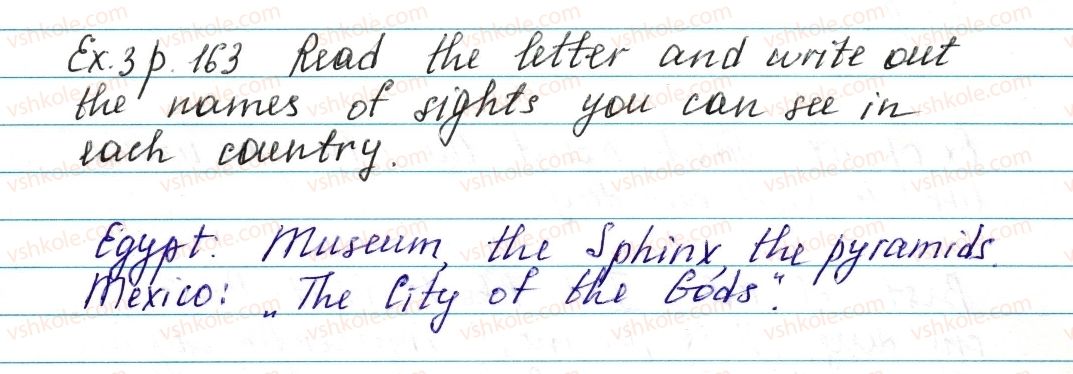 Ex.3 p.163 Read the letter and write out
the names of sights you can see in
each country.
Egypt: Museum, the Sphinx, the pyramids.
Mexico: „The City of the Gods“.